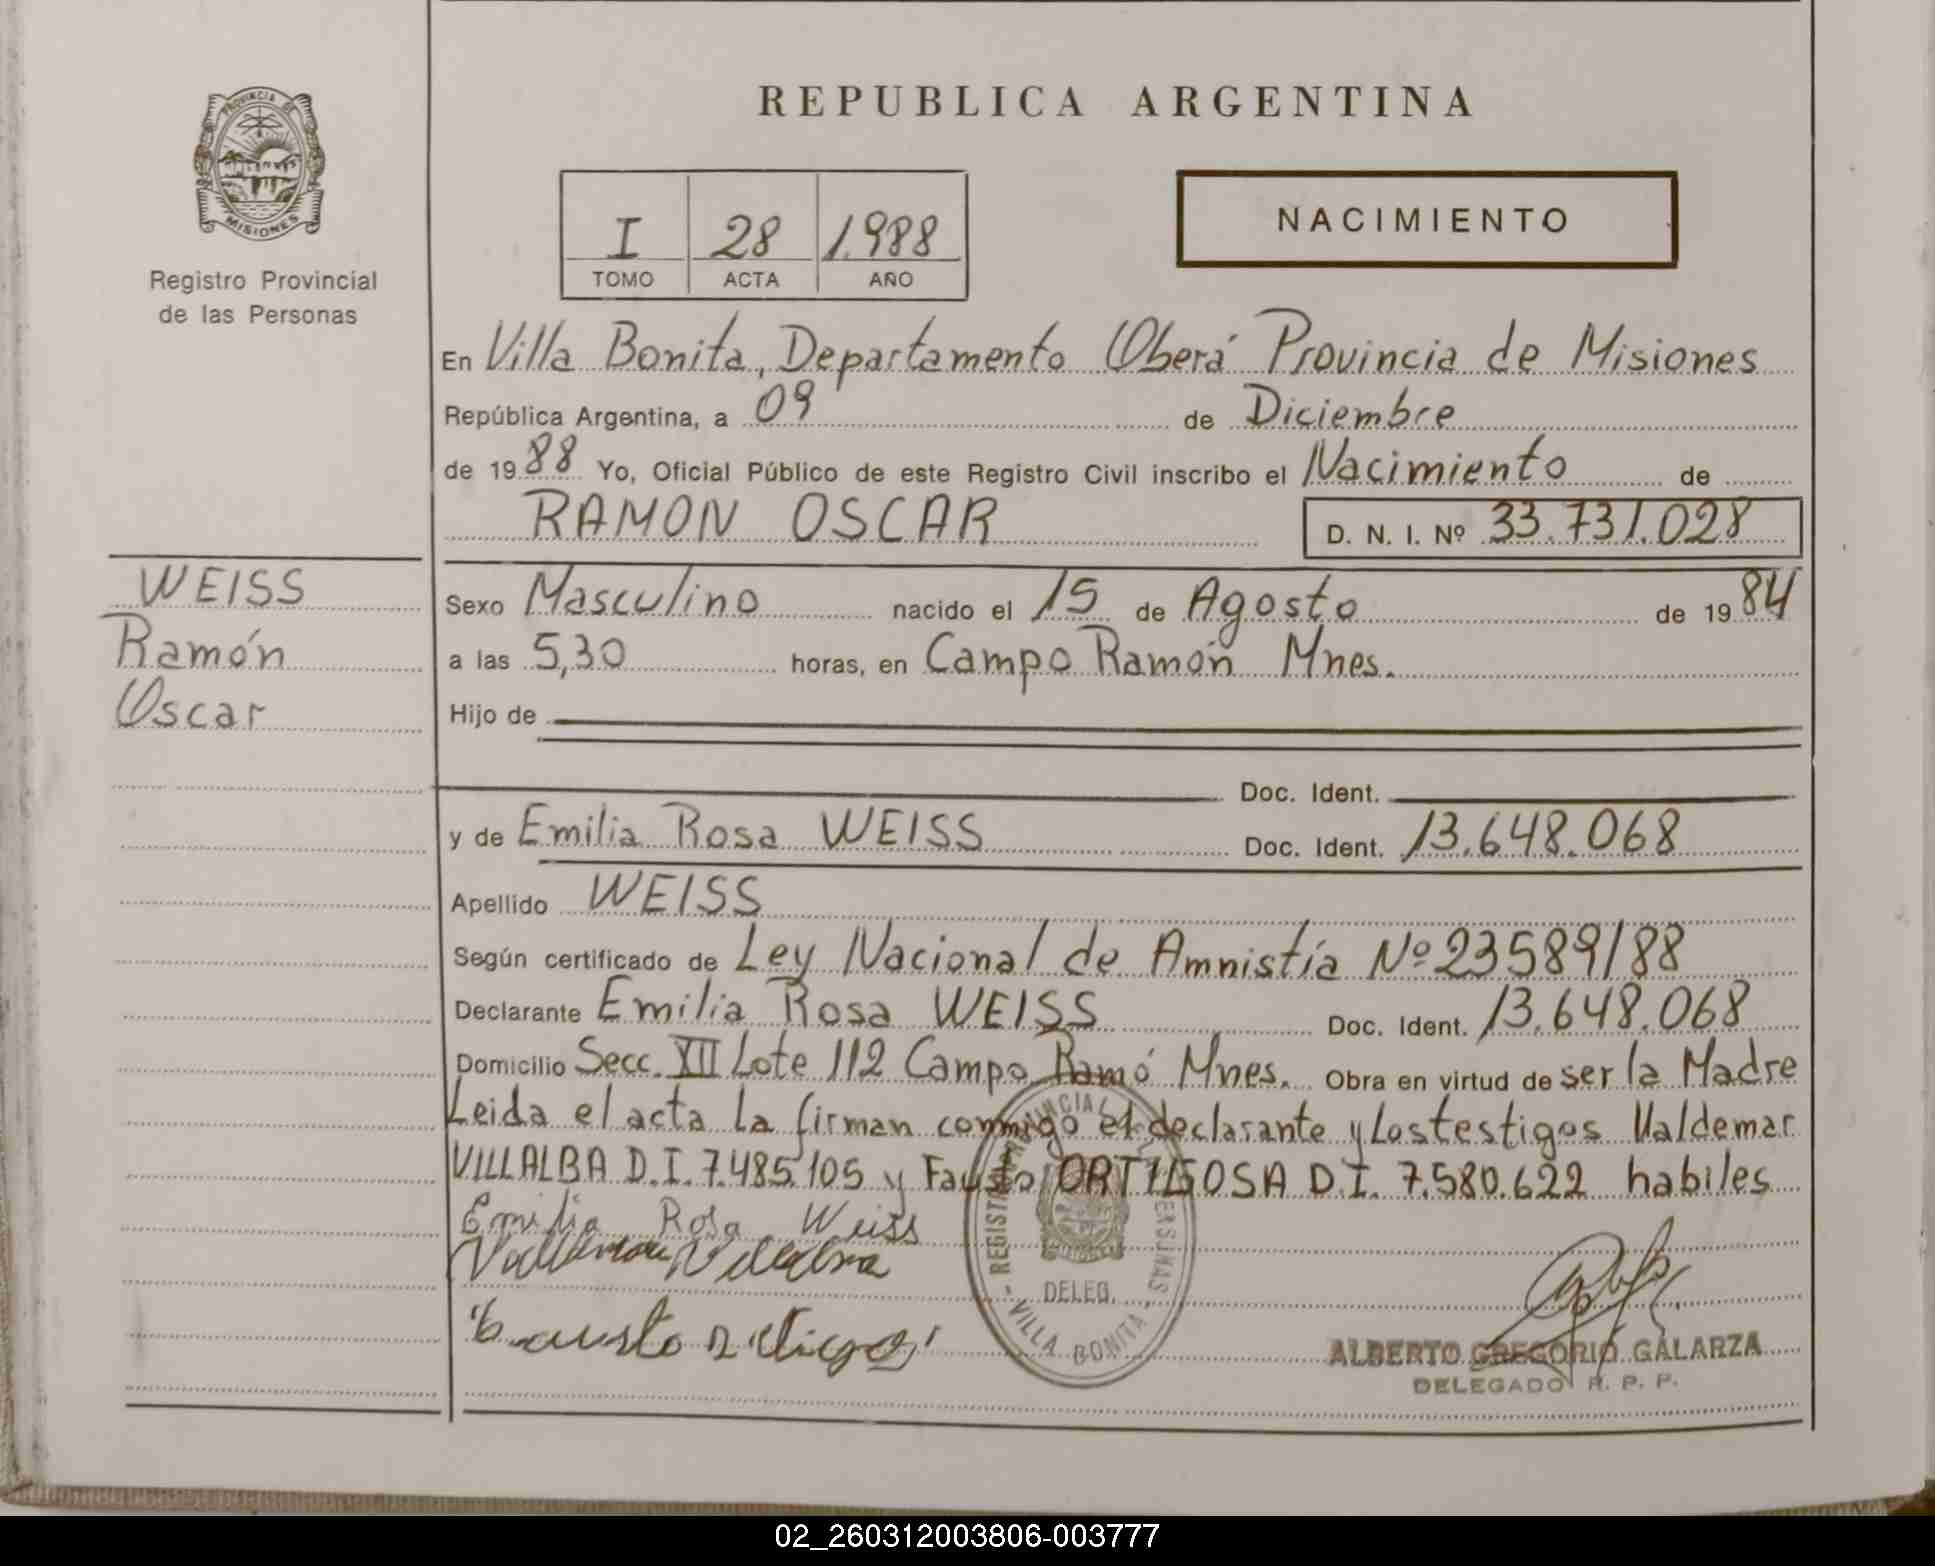 PROVINCIA DE
MISIONES
Registro Provincial
de las Personas
REPUBLICA ARGENTINA
I 28 1.988
TOMO ACTA AÑO
NACIMIENTO
En Villa Bonita, Departamento Oberá Provincia de Misiones
República Argentina, a 09 de Diciembre
de 1988 Yo, Oficial Público de este Registro Civil inscribo el Nacimiento de
RAMON OSCAR D. N. I. Nº 33.731.028
WEISS
Ramón
Oscar
Sexo Masculino nacido el 15 de Agosto de 1984
a las 5,30 horas, en Campo Ramón Mnes.
Hijo de
Doc. Ident.
y de Emilia Rosa WEISS Doc. Ident. 13.648.068
Apellido WEISS
Según certificado de Ley Nacional de Amnistía Nº 23589/88
Declarante Emilia Rosa WEISS Doc. Ident. 13.648.068
Domicilio Secc. XII Lote 112 Campo Ramó Mnes. Obra en virtud de ser la Madre
Leida el acta la firman conmigo el declarante y Los testigos Valdemar
VILLALBA D.I. 7.485.105 y Fausto ORTIGOSA D.I. 7.580.622 habiles
Emilia Rosa Weiss
DELEG.
VILLA BONITA
ALBERTO GREGORIO GALARZA
DELEGADO R. P. P.
02_260312003806-003777